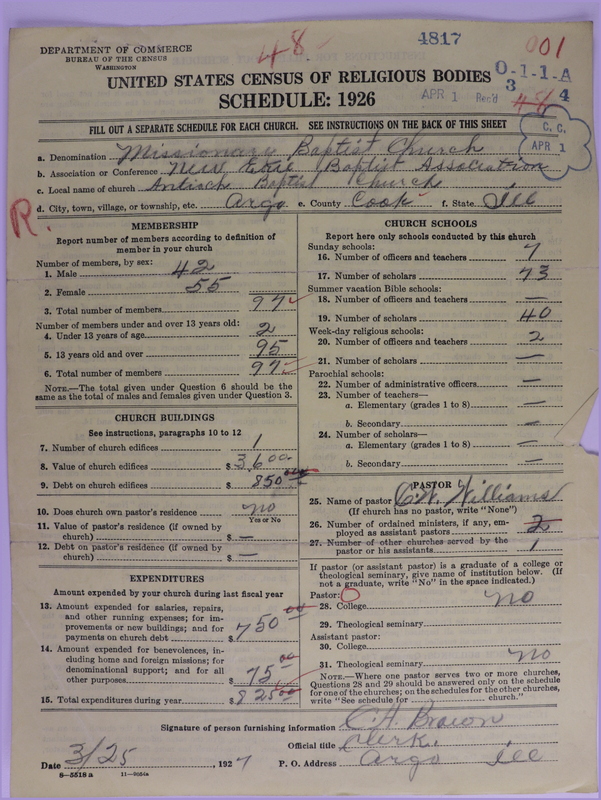 DEPARTMENT OF COMMERCE
BUREAU OF THE CENSUS
WASHINGTON
48
4817
001
UNITED STATES CENSUS OF RELIGIOUS BODIES
O-1-1-A
SCHEDULE: 1926
APR 1 Rec'd
3 48 4
FILL OUT A SEPARATE SCHEDULE FOR EACH CHURCH. SEE INSTRUCTIONS ON THE BACK OF THIS SHEET
C. C.
APR 1
a. Denomination Missionary Baptist Church
b. Association or Conference New Era Baptist Association
c. Local name of church Antioch Baptist Church
d. City, town, village, or township, etc. Argo e. County Cook f. State Ill
R.
MEMBERSHIP
Report number of members according to definition of
member in your church
Number of members, by sex:
1. Male 42
2. Female 55
3. Total number of members 97
Number of members under and over 13 years old:
4. Under 13 years of age 2
5. 13 years old and over 95
6. Total number of members 97
NOTE.—The total given under Question 6 should be
same as the total of males and females given under Question 3.
CHURCH BUILDINGS
See instructions, paragraphs 10 to 12
7. Number of church edifices 1
8. Value of church edifices $ 3600
9. Debt on church edifices $ 850
10. Does church own pastor's residence no
Yes or No
11. Value of pastor's residence (if owned by
church) $ —
12. Debt on pastor's residence (if owned by
church) $ —
EXPENDITURES
Amount expended by your church during last fiscal year
13. Amount expended for salaries, repairs,
and other running expenses; for im-
provements or new buildings; and for
payments on church debt $ 750 00
14. Amount expended for benevolences, in-
cluding home and foreign missions; for
denominational support; and for all
other purposes 75 00
15. Total expenditures during year $ 825 00
CHURCH SCHOOLS
Report here only schools conducted by this church
Sunday schools:
16. Number of officers and teachers 7
17. Number of scholars 73
Summer vacation Bible schools:
18. Number of officers and teachers —
19. Number of scholars 40
Week-day religious schools:
20. Number of officers and teachers 2
21. Number of scholars —
Parochial schools:
22. Number of administrative officers —
23. Number of teachers—
a. Elementary (grades 1 to 8) —
b. Secondary —
24. Number of scholars—
a. Elementary (grades 1 to 8) —
b. Secondary —
PASTOR
25. Name of pastor C. W. Williams
(If church has no pastor, write "None")
26. Number of ordained ministers, if any, em-
ployed as assistant pastors 2
27. Number of other churches served by the
pastor or his assistants 1
If pastor (or assistant pastor) is a graduate of a college or
theological seminary, give name of institution below. (If
not a graduate, write "No" in the space indicated.)
Pastor: O
28. College no
29. Theological seminary
Assistant pastor:
30. College
31. Theological seminary no
NOTE.—Where one pastor serves two or more churches,
Questions 28 and 29 should be answered only on the schedule
for one of the churches; on the schedules for the other churches,
write "See schedule for church."
Signature of person furnishing information C. H. Brown
Official title Clerk.
Date 3/25, 1927 P. O. Address Argo Ill
8—5518 a 11—9054a